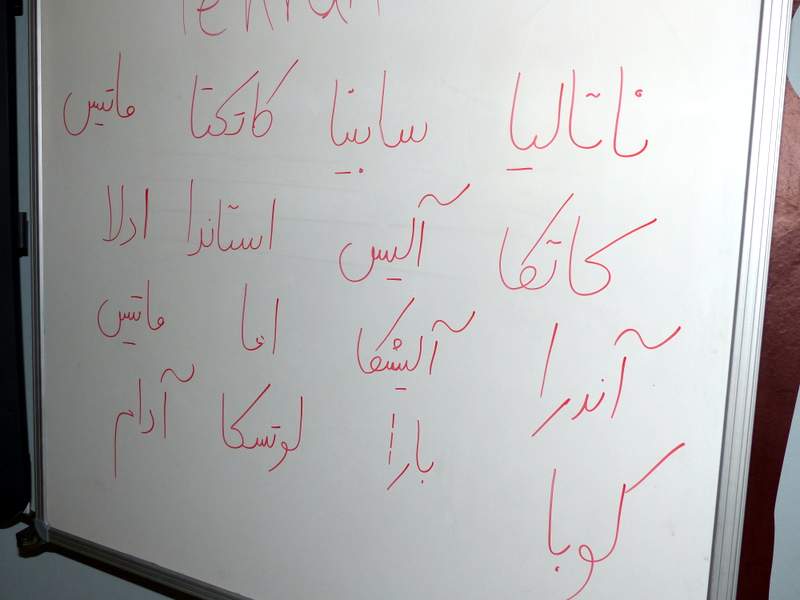 Tehran
ناتالیا سابینا کاتکتا ماتیس
کاتکا آلیس استاندا ادلا
آندرا آلیشکا اما ماتیس
کوبا بارا لوتسکا آدام